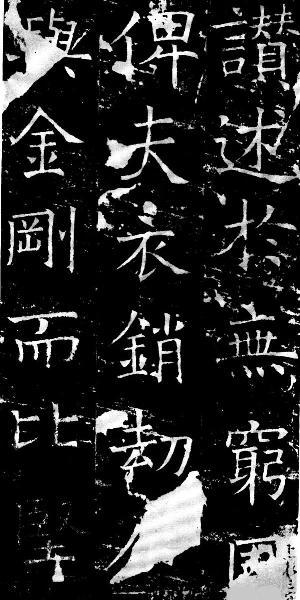 讃述於無窮
俾夫衣銷劫
與金剛而比堅